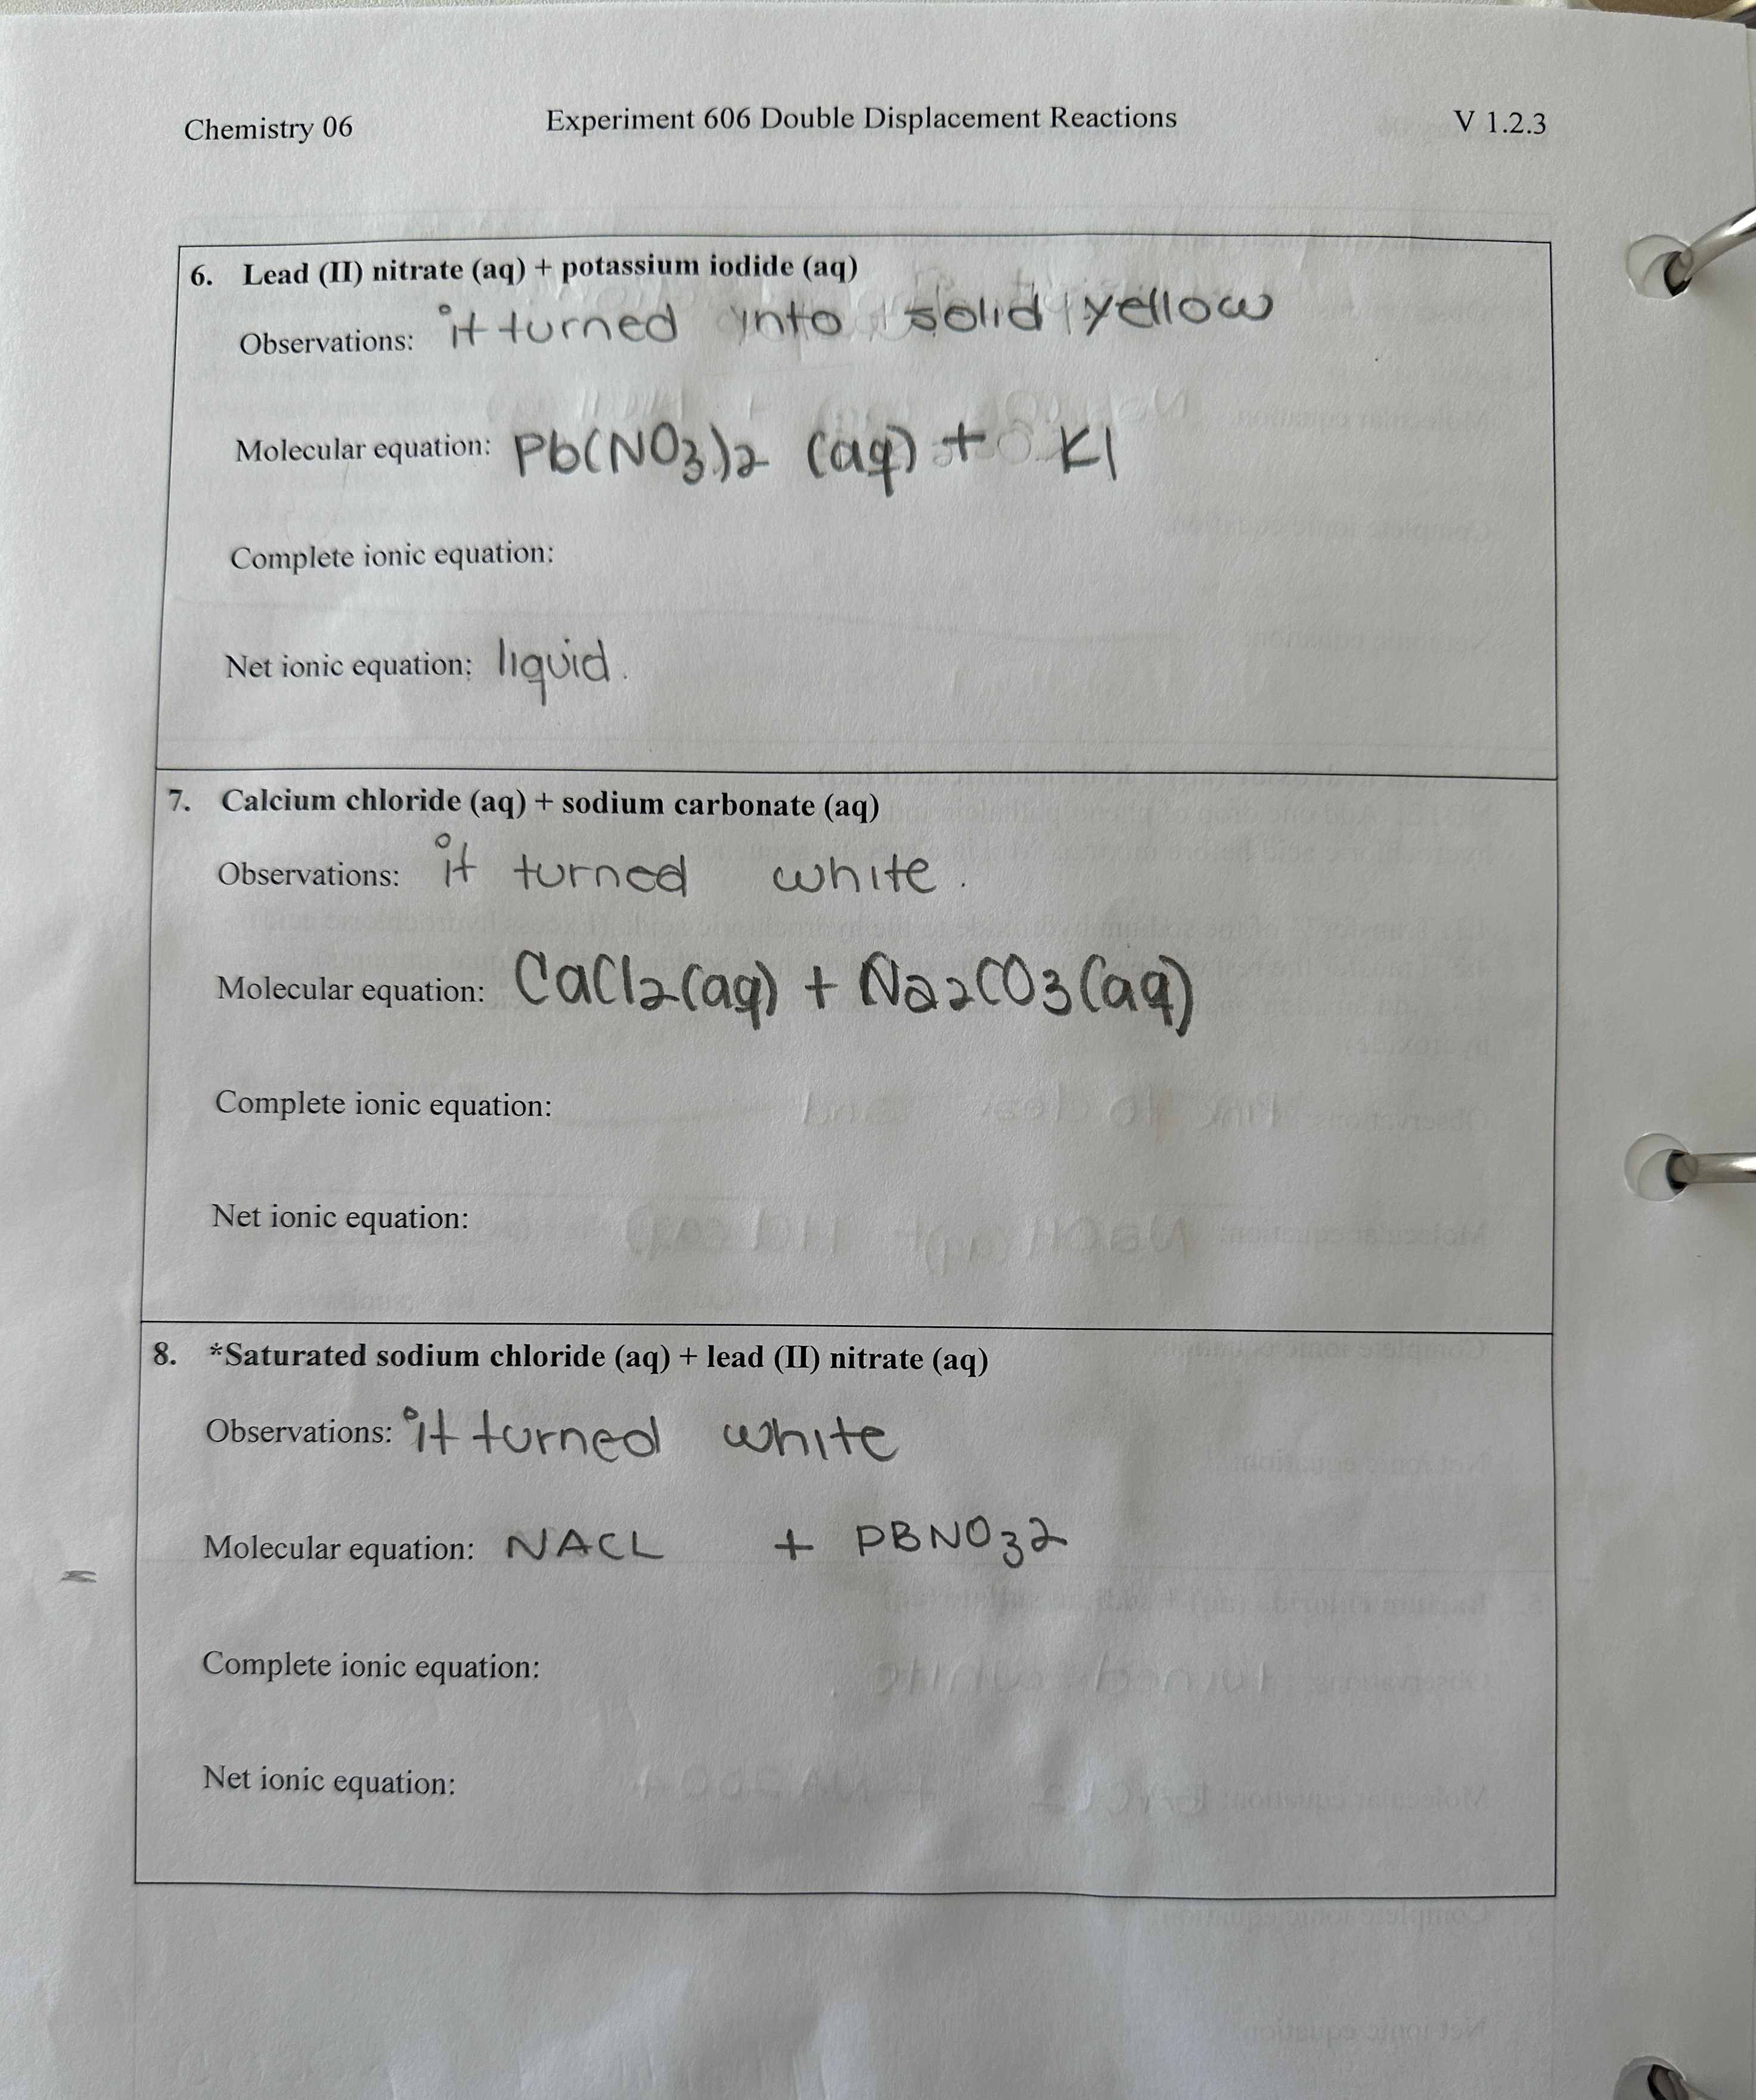 Chemistry 06 Experiment 606 Double Displacement Reactions V 1.2.3
6. Lead (II) nitrate (aq) + potassium iodide (aq)
Observations: it turned into solid yellow
Molecular equation: Pb(NO3)2 (aq) + KI
Complete ionic equation:
Net ionic equation: liquid.
7. Calcium chloride (aq) + sodium carbonate (aq)
Observations: it turned white.
Molecular equation: CaCl2(aq) + Na2CO3(aq)
Complete ionic equation:
Net ionic equation:
8. *Saturated sodium chloride (aq) + lead (II) nitrate (aq)
Observations: it turned white
Molecular equation: NACL + PBNO32
Complete ionic equation:
Net ionic equation: